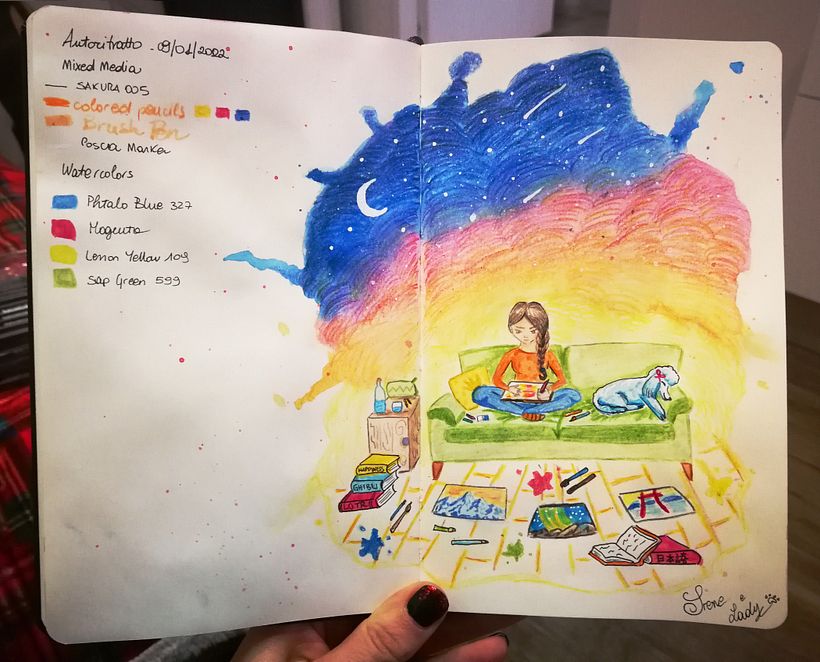 Autoritratto - 09/01/2022
Mixed Media
SAKURA 005
colored pencils
Brush Pen
Posca Marker
Watercolors
Phtalo Blue 327
Magenta
Lemon Yellow 109
Sap Green 599
HAPPINESS
GHIBLI
LOTR
日本語
Irene e
Lady